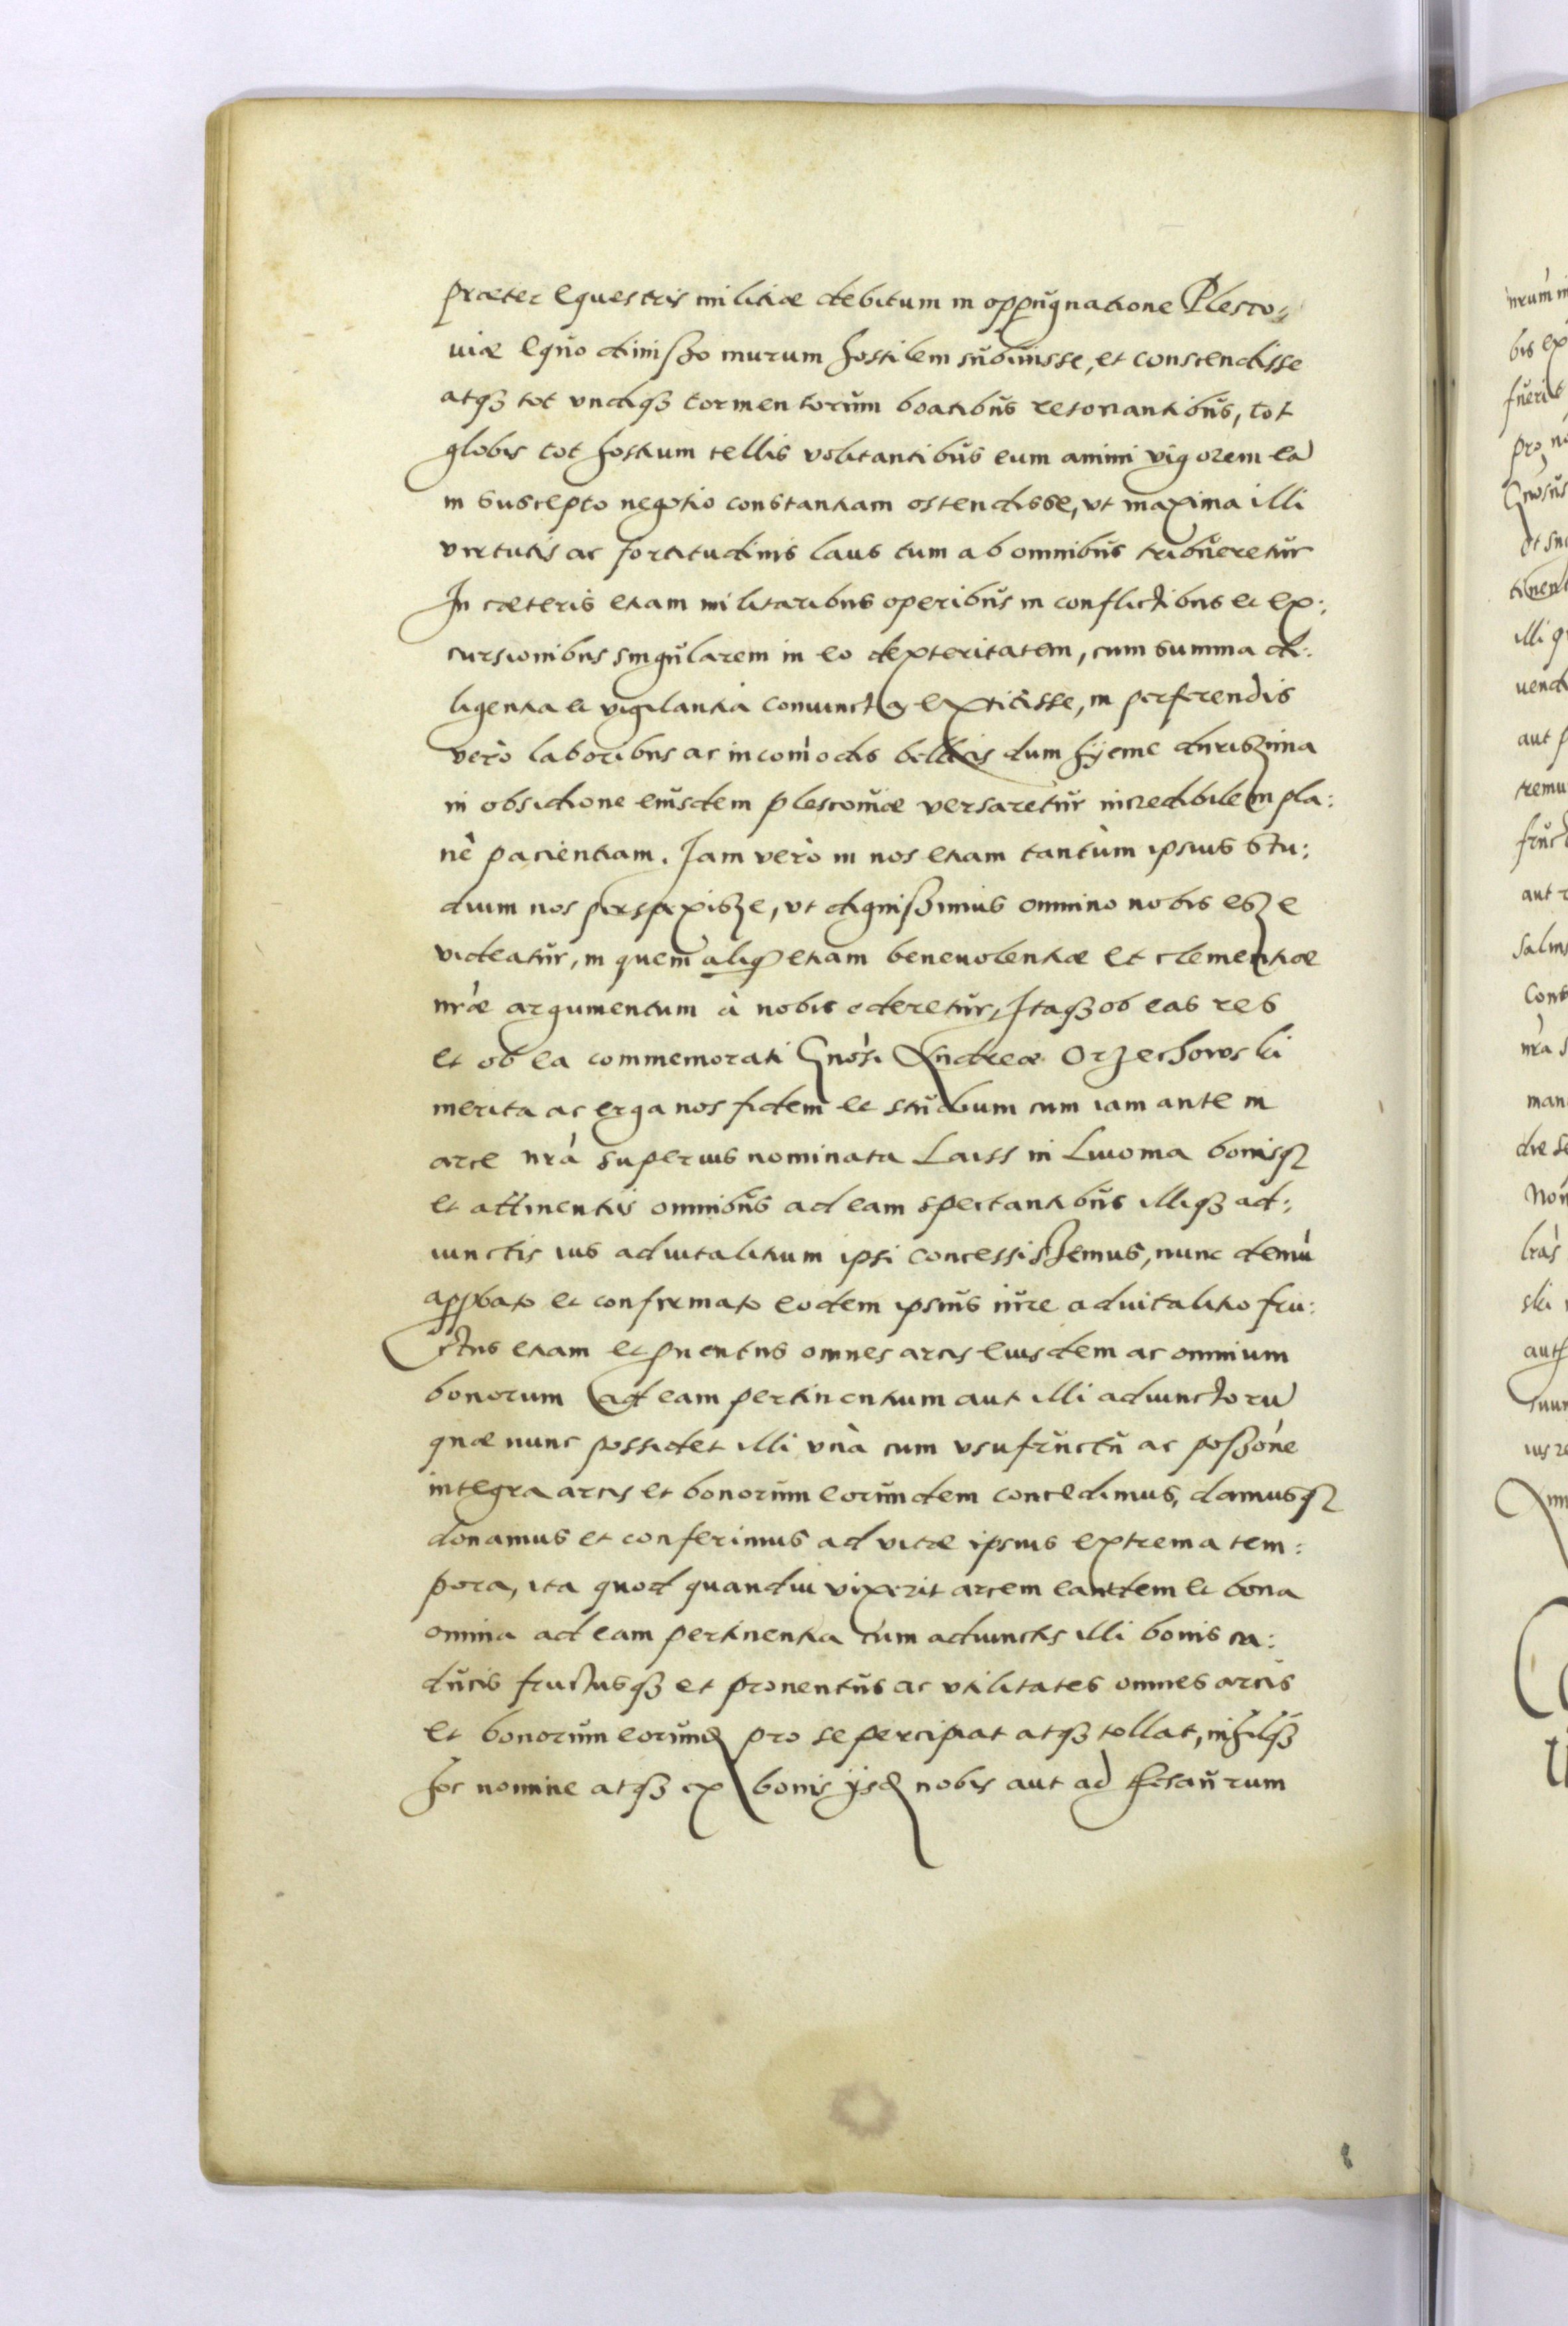 præter equestris militiæ debitum in oppugnatione Plesco:
uiæ equo dimisso murum hostilem subiuisse, et conscendisse
atqꝫ tot vndiqꝫ tormentorum boatibus resonantibus, tot
globis tot hostium tellis volitantibus eum animi vigorem ea
in suscepto negotio constantiam ostendisse, vt maxima illi
virtutis ac fortitudinis laus tum ab omnibus tribueretur
In cæteris etiam militaribus operibus in conflictibus et ex:
cursionibus singularem in eo dexteritatem, cum summa di:
ligentia et vigilantia coniuncta extitisse, in perferendis
verò laboribus ac incomodis bellicis dum hyeme durissima
in obsidione eiusdem plescouiæ versaretur incredibilem pla:
nè pacientiam. Iam verò in nos etiam tantùm ipsius stu:
dium nos perspexisse, vt dignissimus omnino nobis esse
videatur, in quem aliqꝫ etiam beneuolentiæ et clementiæ
nr̃æ argumentum à nobis ederetur, Itaqꝫ ob eas res
et ob ea commemorati Gnosi Andreæ Orzechowski
merita ac erga nos fidem et studium cum iam ante in
arce nr̃a superius nominata Laiss in Liuonia bonisqꝫ
et attinentiis omnibus ad eam spectantibus illiqꝫ ad:
iunctis ius aduitalitium ipsi concessissemus, nunc demũ
approbato et confirmato eodem ipsius iure aduitalitio fru:
ctus etiam et puentus omnes arcis eiusdem ac omnium
bonorum ad eam pertinentium aut illi adiunctorũ
quæ nunc possidet illi vnà cum vsufructu ac possone
integra arcis et bonorum eorundem concedimus, damusqꝫ
donamus et conferimus ad vitæ ipsius extrema tem:
pora, ita quod quandiu vixerit arcem eandem et bona
omnia ad eam pertinentia cum adiunctis illi bonis ca:
ducis fructusqꝫ et prouentus ac vtilitates omnes arcis
et bonorum eorund pro se percipiat atqꝫ tollat, nihilqꝫ
hoc nomine atqꝫ ex bonis ijsd nobis aut ad thesaurum
8